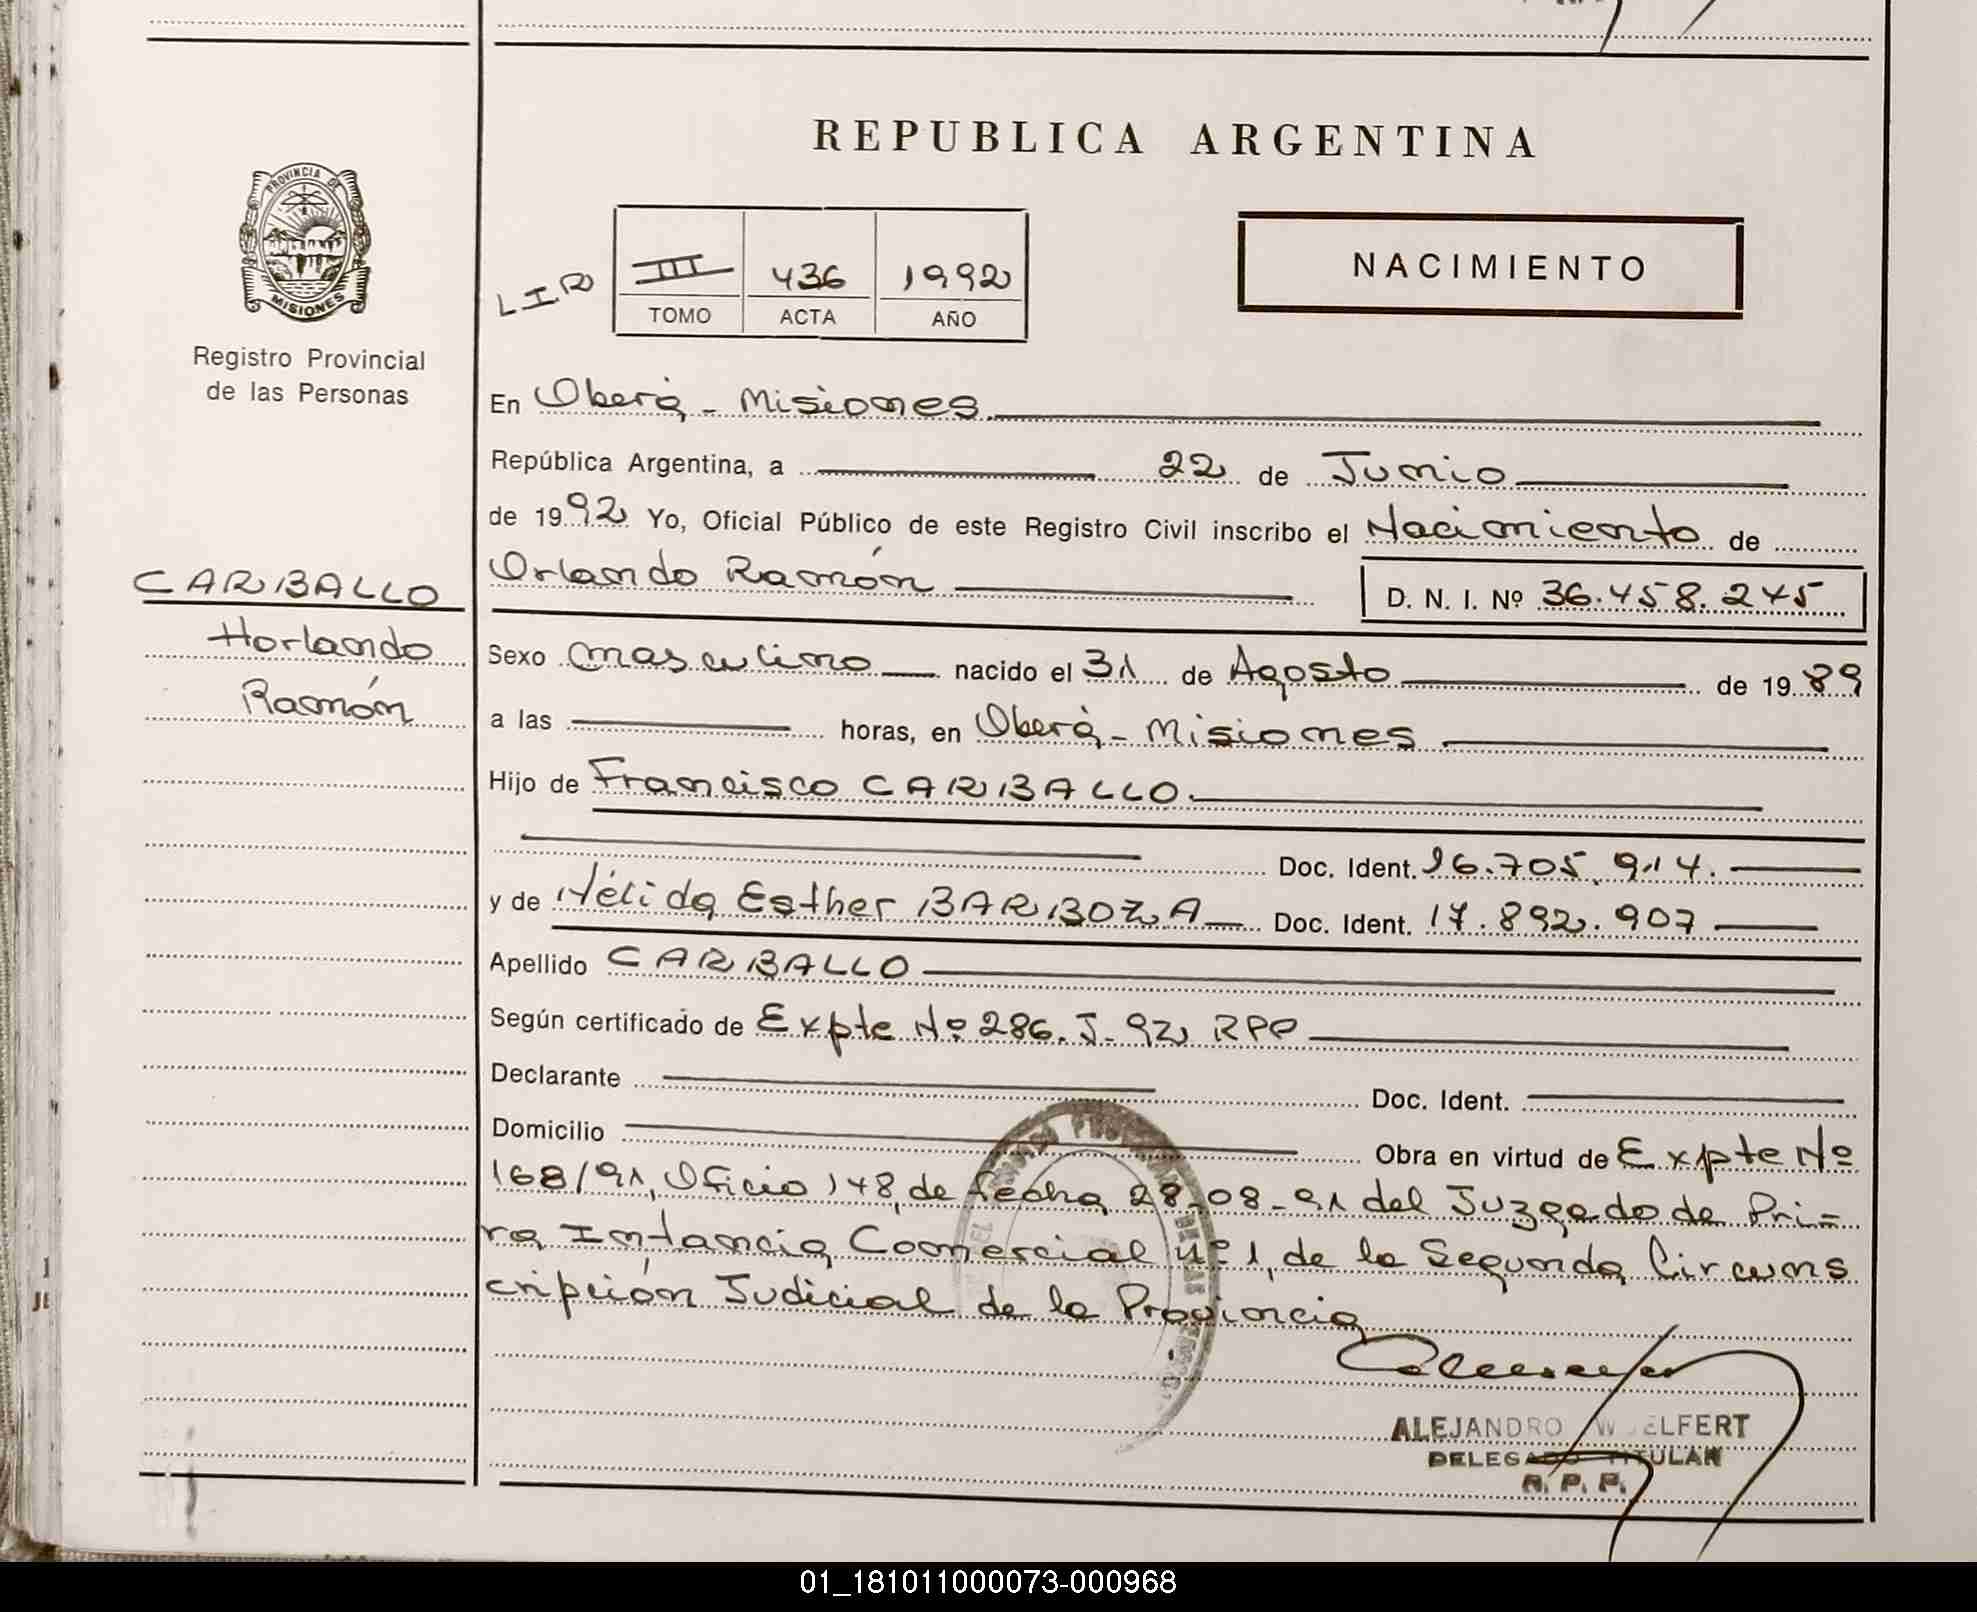 REPUBLICA ARGENTINA
PROVINCIA DE
MISIONES
Registro Provincial
de las Personas
LIR
III 436 1992
TOMO ACTA AÑO
NACIMIENTO
En Oberá - Misiones
República Argentina, a 22 de Junio
de 1992 Yo, Oficial Público de este Registro Civil inscribo el Nacimiento de
Orlando Ramón
D. N. I. Nº 36.458.245
CARBALLO
Horlando
Ramón
Sexo masculino nacido el 31 de Agosto de 1989
a las horas, en Oberá - Misiones
Hijo de Francisco CARBALLO.
Doc. Ident. 16.705.914.
y de Nélida Esther BARBOZA Doc. Ident. 17.892.907
Apellido CARBALLO
Según certificado de Expte Nº 286. J- 92 RPP
Declarante Doc. Ident.
Domicilio Obra en virtud de Expte Nº
168/91, Oficio 148, de fecha 28-08-91 del Juzgado de Pri-
ra Intancia Comercial Nº 1, de la Segunda Circuns
cripción Judicial de la Provincia
ALEJANDRO WOELFERT
DELEGADO TITULAR
R. P. P.
01_181011000073-000968